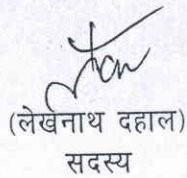 (लेखनाथ दहाल)
सदस्य